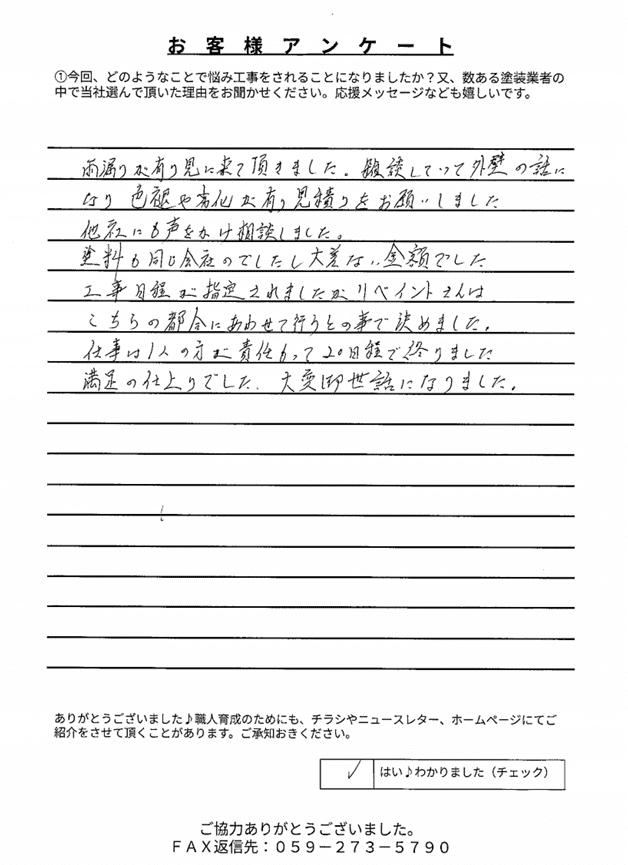 お客様アンケート
①今回、どのようなことで悩み工事をされることになりましたか？又、数ある塗装業者の
中で当社選んで頂いた理由をお聞かせください。応援メッセージなども嬉しいです。
雨漏りが有り見に来て頂きました。相談していって外壁の話に
なり 色褪や劣化が有り見積りをお願いしました
他社にも声をかけ相談しました。
塗料も同じ会社のでしたし大差ない金額でした
工事日程が指定されましたがリペイントさんは
こちらの都合にあわせて行うとの事で決めました。
仕事は1人の方が責任もって20日程で終りました
満足の仕上りでした、大変御世話になりました。
ありがとうございました♪職人育成のためにも、チラシやニュースレター、ホームページにてご
紹介をさせて頂くことがあります。ご承知おきください。
✓ はい♪わかりました（チェック）
ご協力ありがとうございました。
ＦＡＸ返信先：０５９－２７３－５７９０